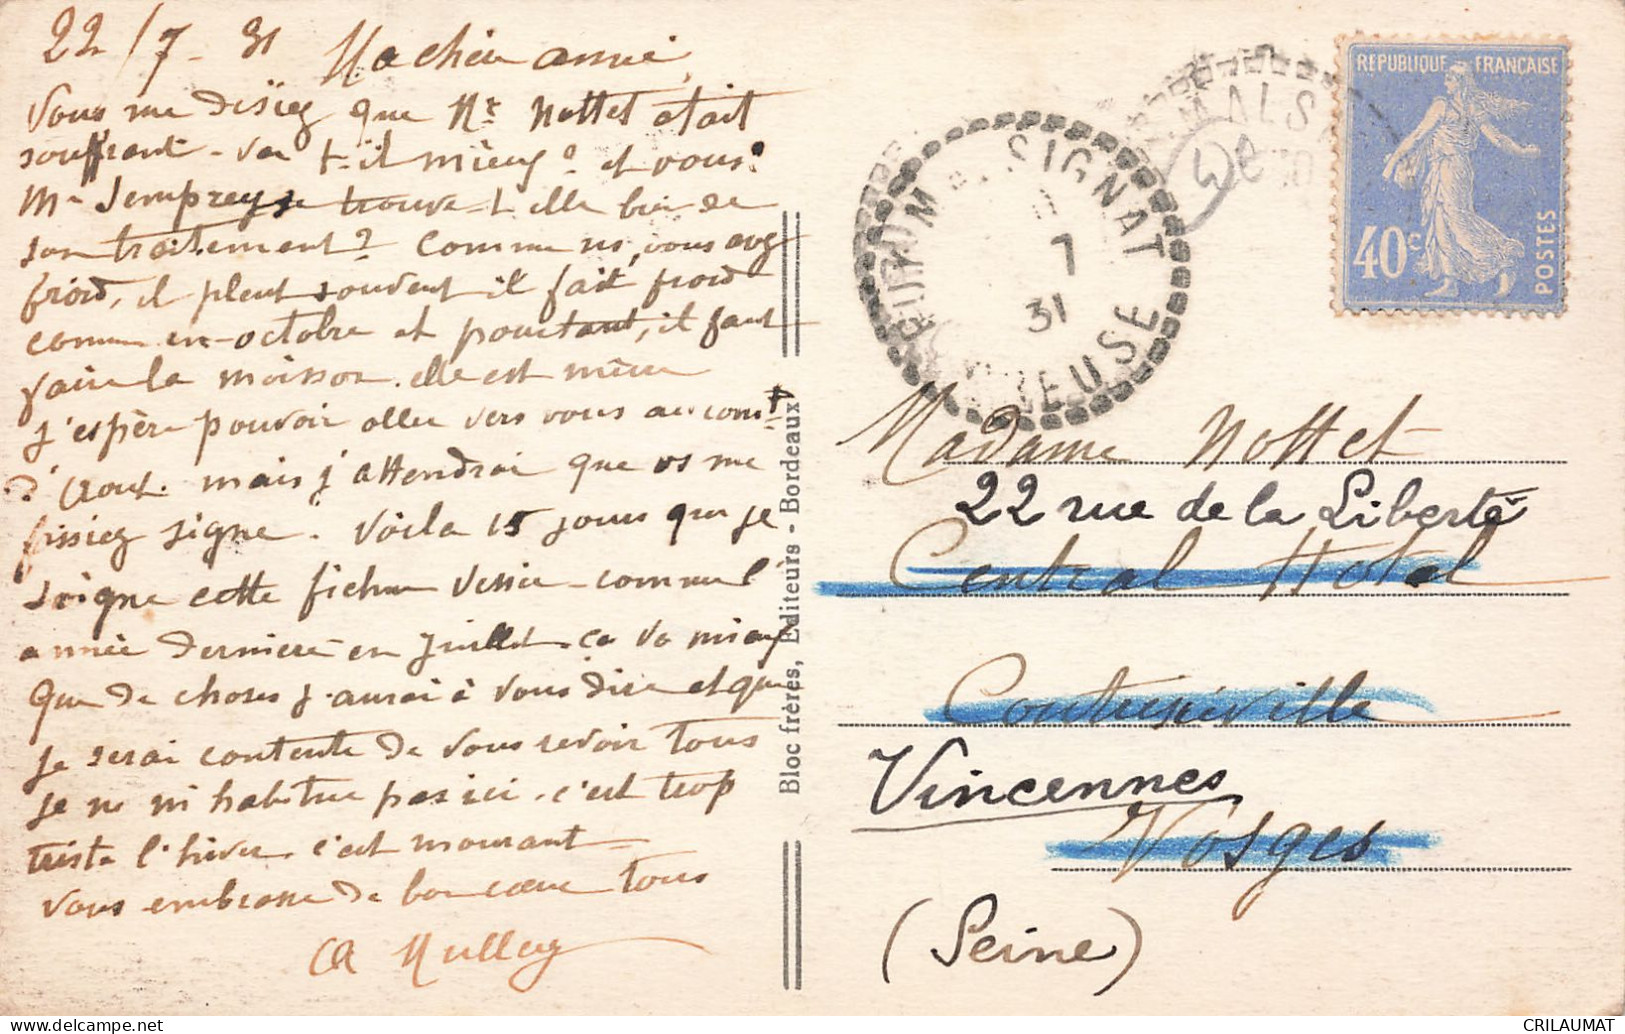 22/7-31 Ma chère amie,
Vous me disiez que Mr Nottet était
souffrant - va t-il mieux? et vous?
Me Semprey se trouve-t elle bien de
son traitement? Comme ns, vous avez
froid, il pleut souvent il fait froid
comme en octobre et pourtant, il faut
faire la moisson. elle est mûre
j'espère pouvoir aller vers vous au comt
d'Aout. mais j'attendrai que vs me
fissiez signe. Voila 15 jours que je
soigne cette fichue vessie - comme l'
année dernière en Juillet. ça va mieux
que de choses j'aurai à vous dire et que
je serai contente de vous revoir tous
je ne m'habitue pas ici. c'est trop
triste l'hiver. c'est mourant
Vous embrasse de bon coeur tous
Bloc frères, Editeurs - Bordeaux
SIGNAT
CREUSE
7
31
REPUBLIQUE FRANÇAISE
40c
POSTES
Madame Nottet
22 rue de la Liberté
Central Hotel
Contrexéville
Vincennes
Vosges
(Seine)
CRILAUMAT